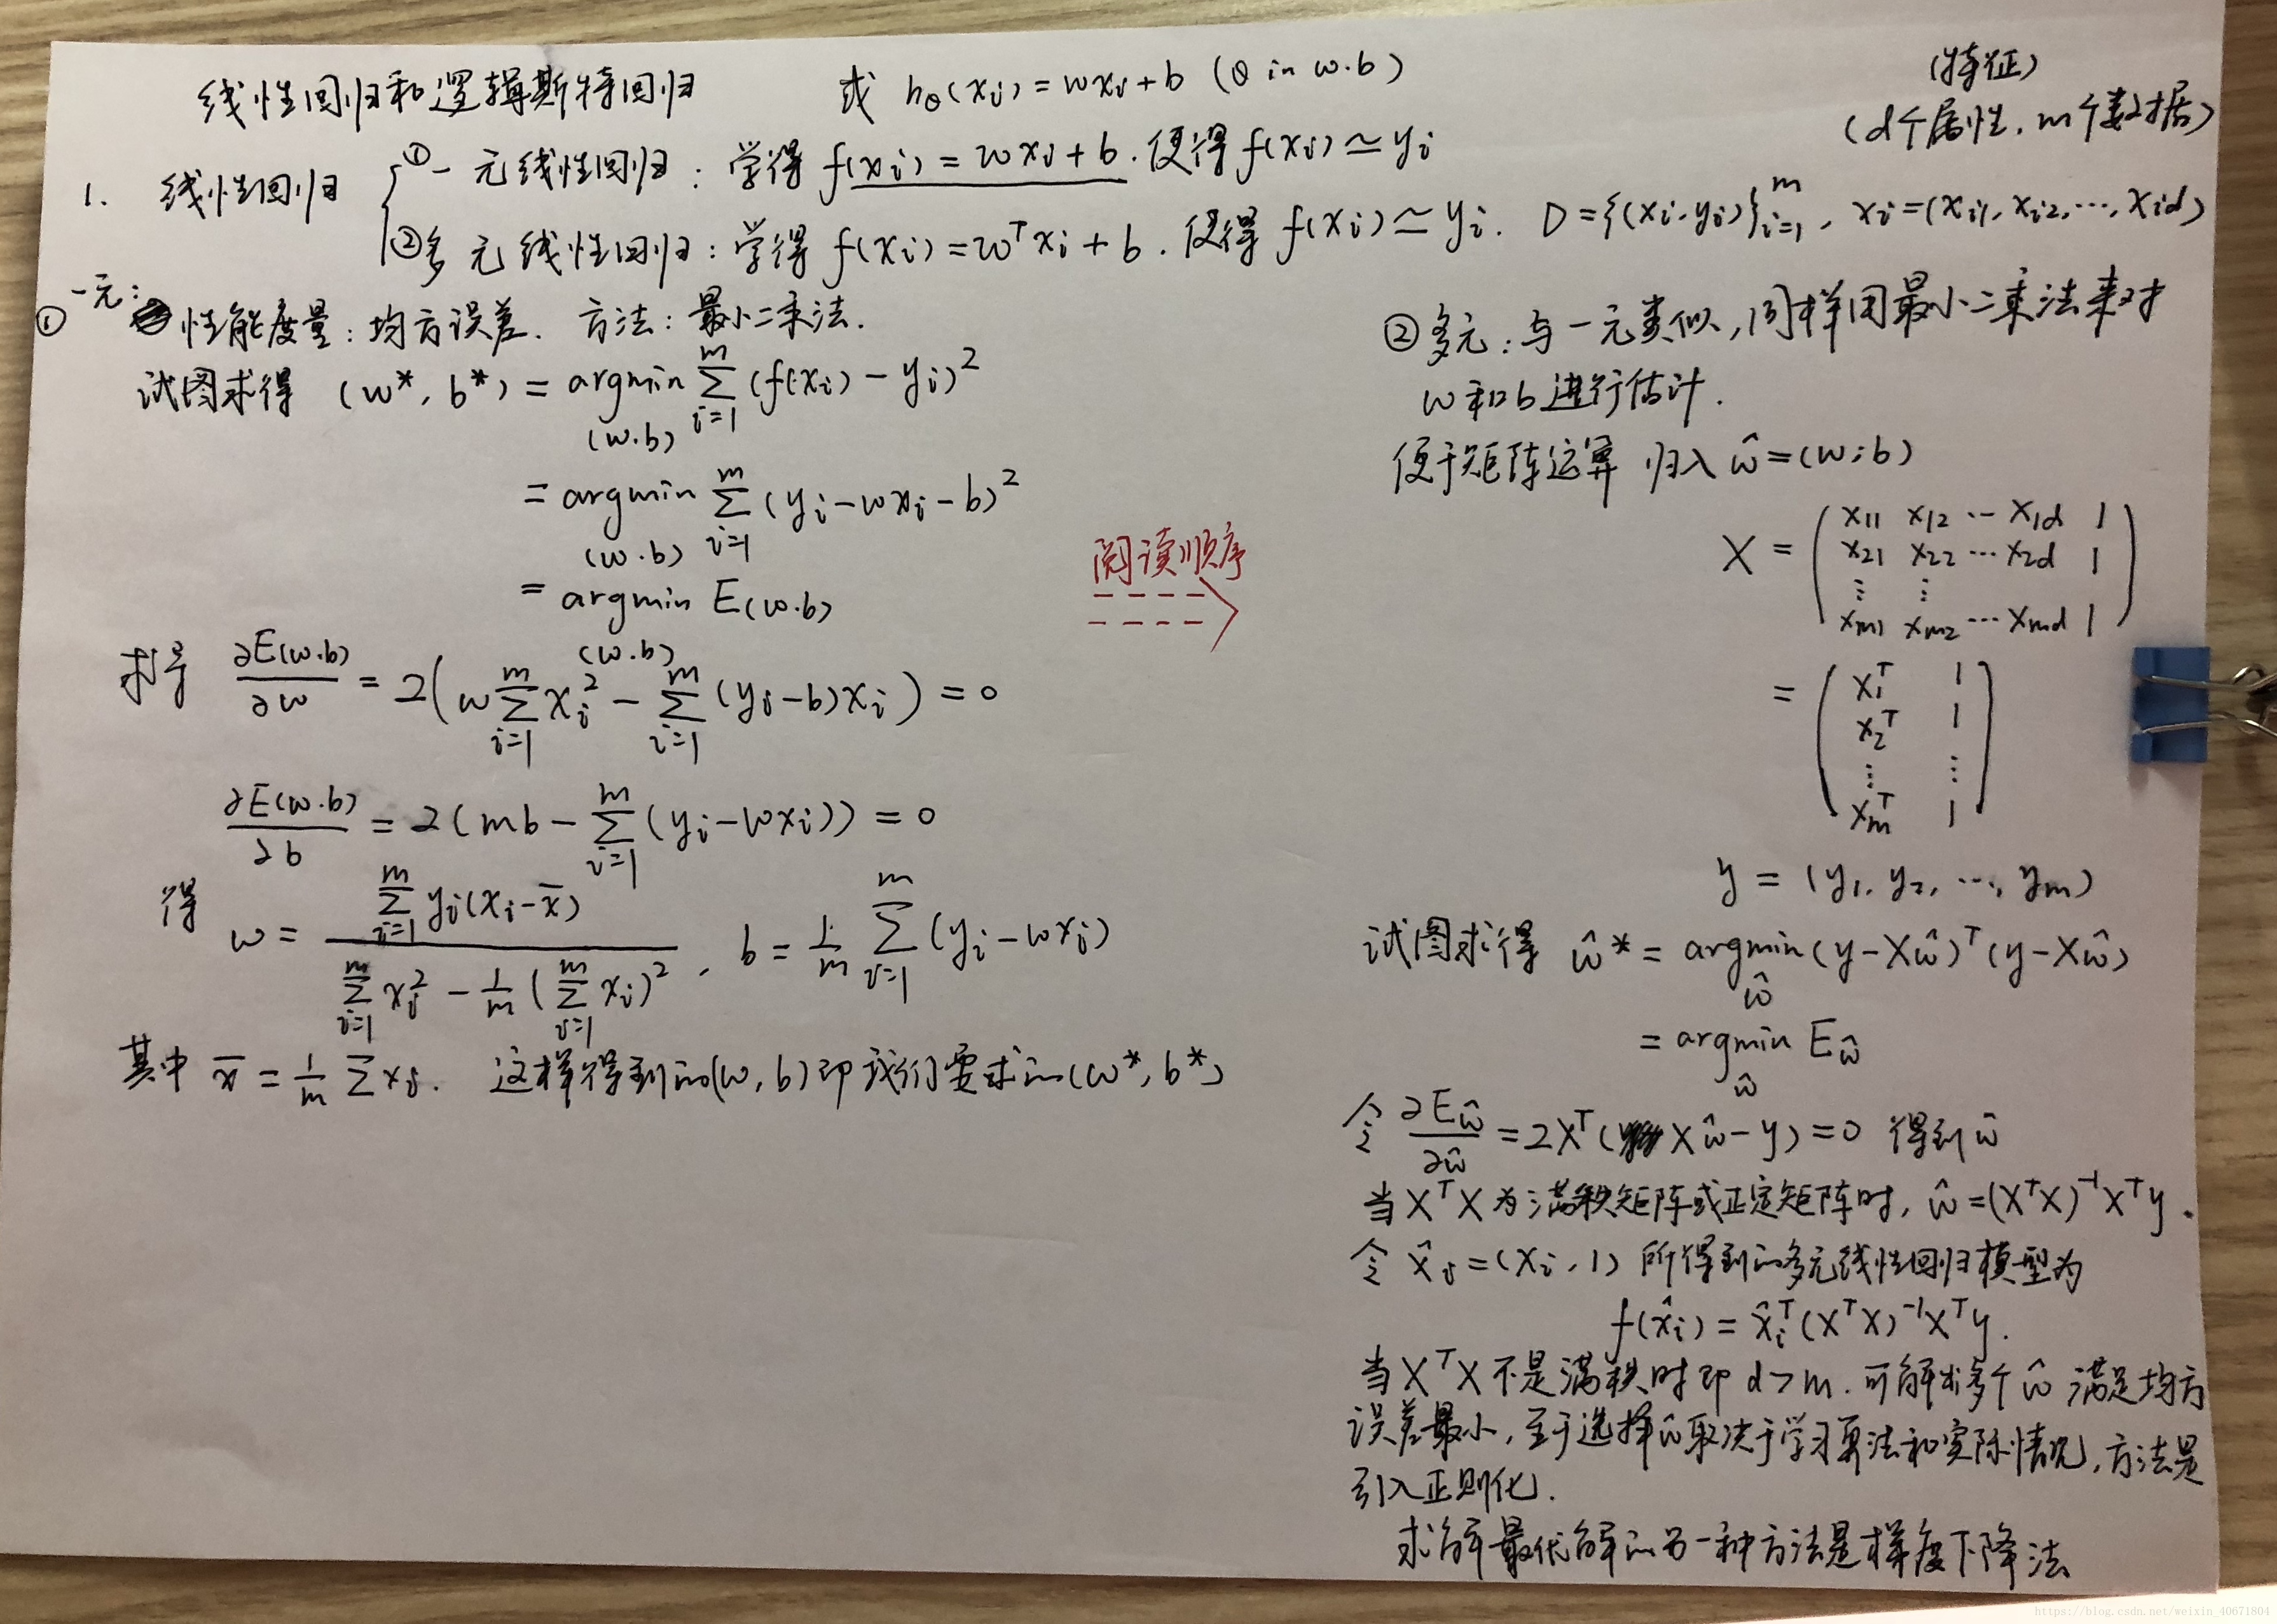 线性回归和逻辑斯特回归
或 hθ(xi) = wxi + b (θ in w.b)
(特征)
(d个属性, m个数据)
1. 线性回归
①一元线性回归: 学得 f(xi) = wxi + b. 使得 f(xi) ≃ yi
②多元线性回归: 学得 f(xi) = wᵀxi + b. 使得 f(xi) ≃ yi. D = {(xi, yi)}ᵢ₌₁ᵐ, xi = (xi1, xi2, ⋯, xid)
① 一元:
性能度量: 均方误差. 方法: 最小二乘法.
试图求得 (w*, b*) = argmin(w.b) ∑ᵢ₌₁ᵐ (f(xi) − yi)²
= argmin(w.b) ∑ᵢ₌₁ᵐ (yi − wxi − b)²
= argmin(w.b) E(w.b)
求导 ∂E(w.b)/∂w = 2(w∑ᵢ₌₁ᵐ xi² − ∑ᵢ₌₁ᵐ (yi − b)xi) = 0
∂E(w.b)/∂b = 2(mb − ∑ᵢ₌₁ᵐ (yi − wxi)) = 0
得 w = ∑ᵢ₌₁ᵐ yi(xi − x̄) / (∑ᵢ₌₁ᵐ xi² − 1/m (∑ᵢ₌₁ᵐ xi)²), b = 1/m ∑ᵢ₌₁ᵐ (yi − wxi)
其中 x̄ = 1/m ∑xi. 这样得到的(w, b)即我们要求的(w*, b*)
阅读顺序
②多元: 与一元类似, 同样用最小二乘法来对
w和b进行估计.
便于矩阵运算 归入 ŵ = (w; b)
X = ( x11 x12 ⋯ x1d 1
x21 x22 ⋯ x2d 1
⋮ ⋮
xm1 xm2 ⋯ xmd 1 )
= ( x1ᵀ 1
x2ᵀ 1
⋮ ⋮
xmᵀ 1 )
y = (y1, y2, ⋯, ym)
试图求得 ŵ* = argminŵ (y − Xŵ)ᵀ(y − Xŵ)
= argminŵ Eŵ
令 ∂Eŵ/∂ŵ = 2Xᵀ(Xŵ − y) = 0 得到ŵ
当XᵀX为满秩矩阵或正定矩阵时, ŵ = (XᵀX)⁻¹Xᵀy.
令 x̂i = (xi, 1) 所得到的多元线性回归模型为
f(x̂i) = x̂iᵀ(XᵀX)⁻¹Xᵀy.
当XᵀX不是满秩时即 d > m. 可解出多个ŵ 满足均方
误差最小, 至于选择ŵ取决于学习算法和实际情况, 方法是
引入正则化.
求解最优解的另一种方法是梯度下降法
https://blog.csdn.net/weixin_40671804